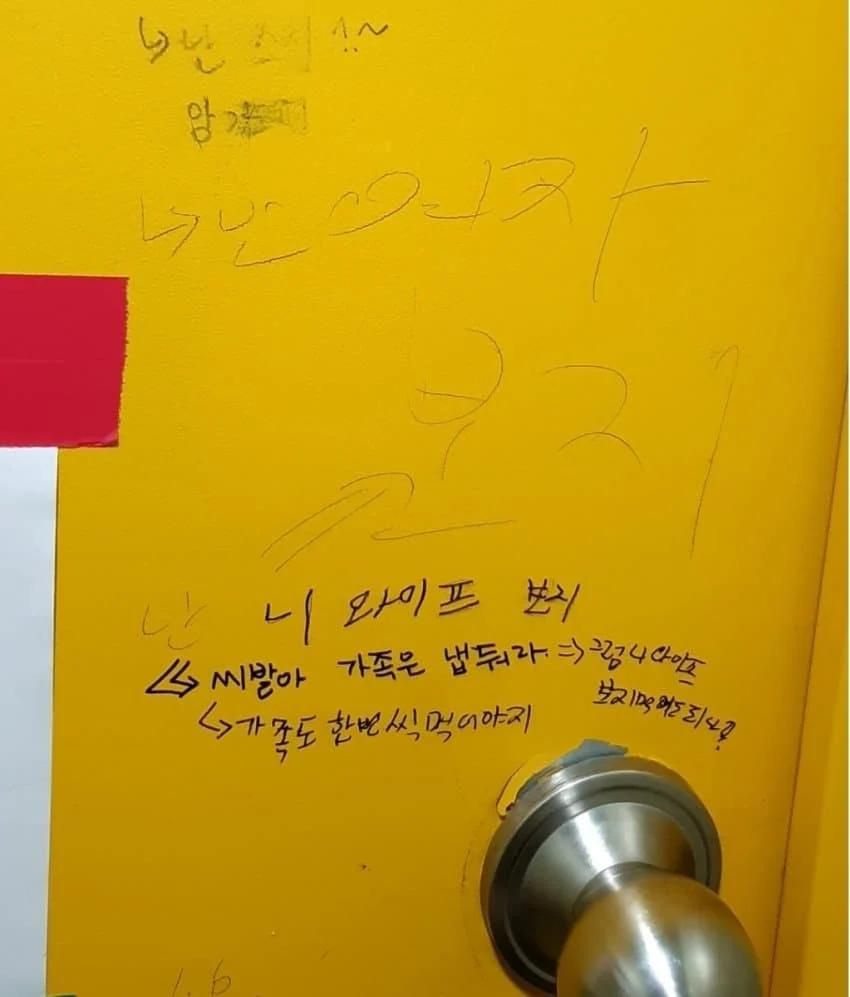 ↳ 난
암
↳ 난 여자
보지
난 니 와이프 보지
↳ 씨발아 가족은 냅둬라. ⇒ 그럼 니 와이프
보지 먹어도 되냐?
↳ 가족도 한번씩 먹어야지